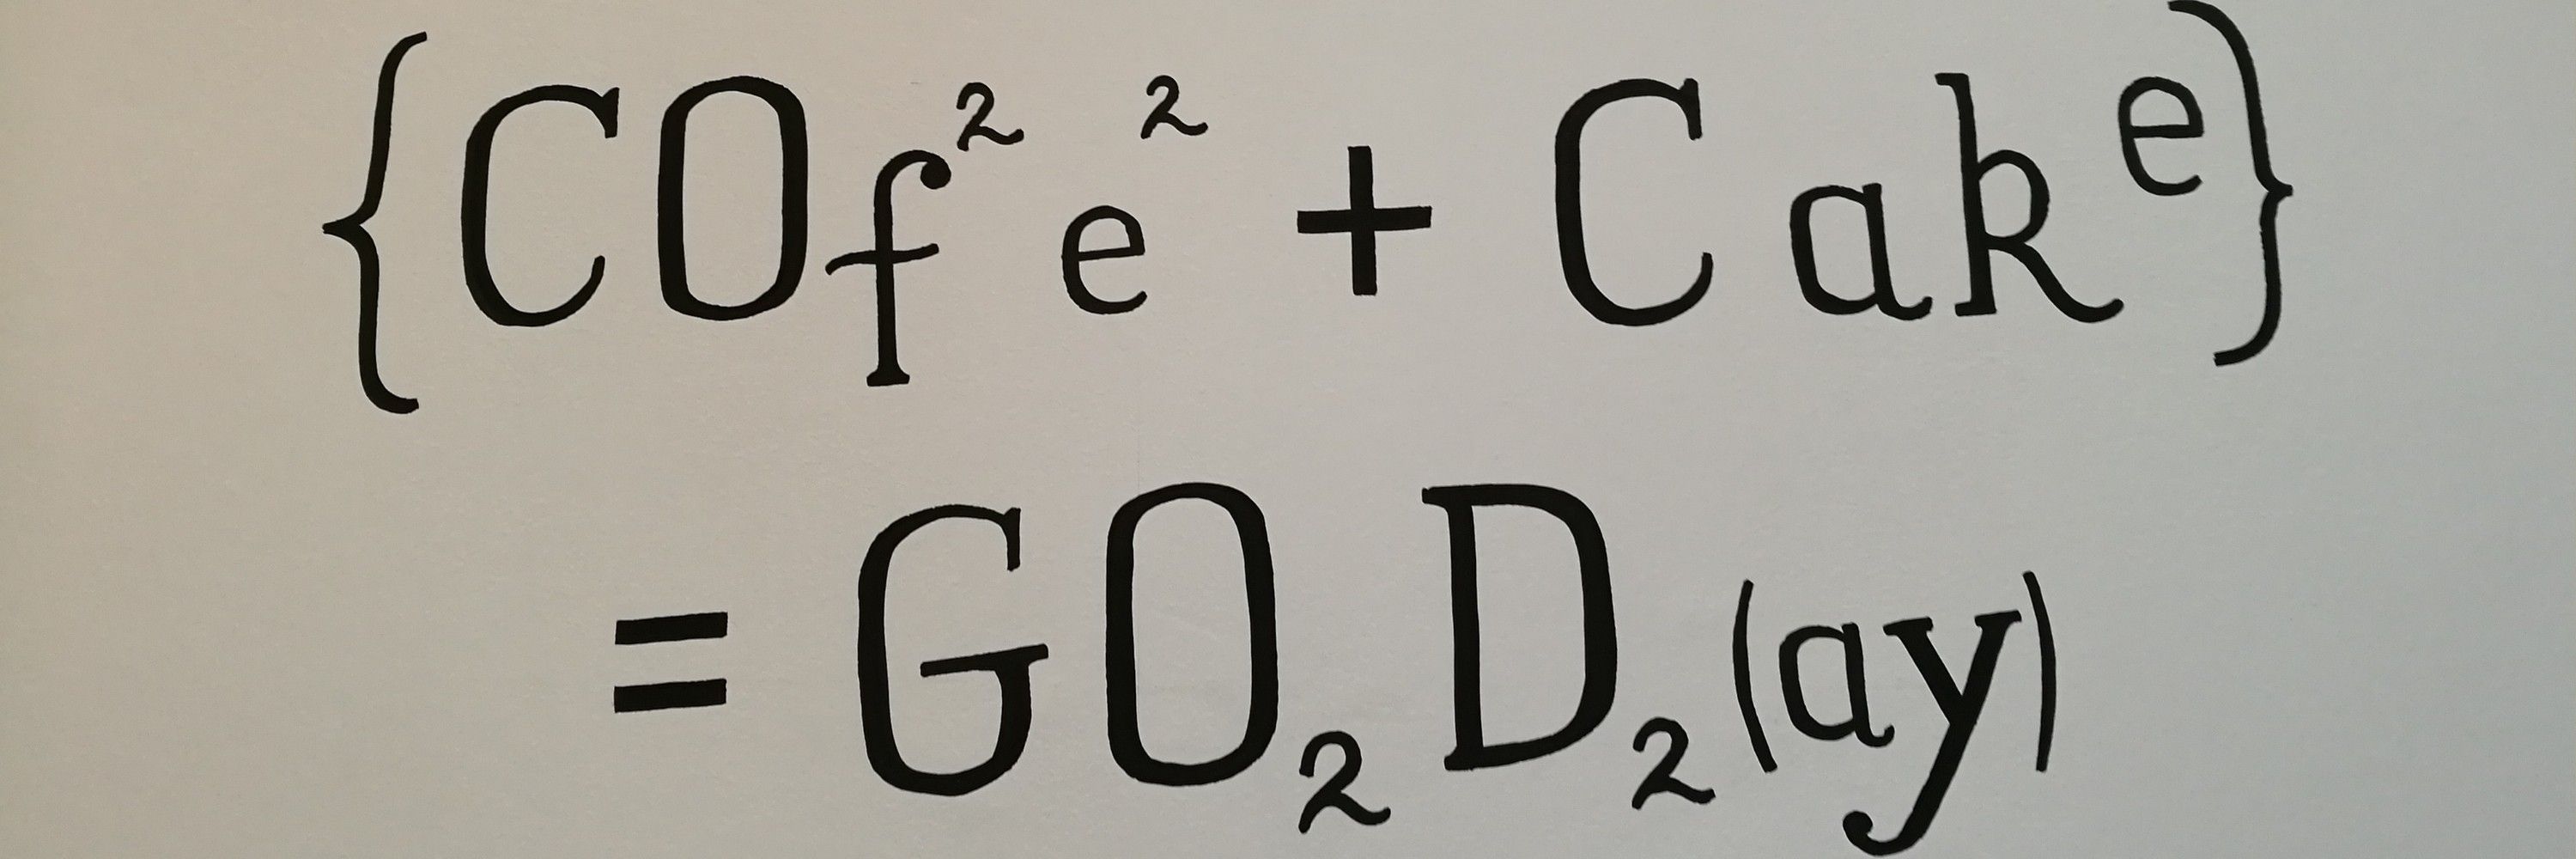 {COf²e² + Cakᵉ}
= GO₂D₂(ay)